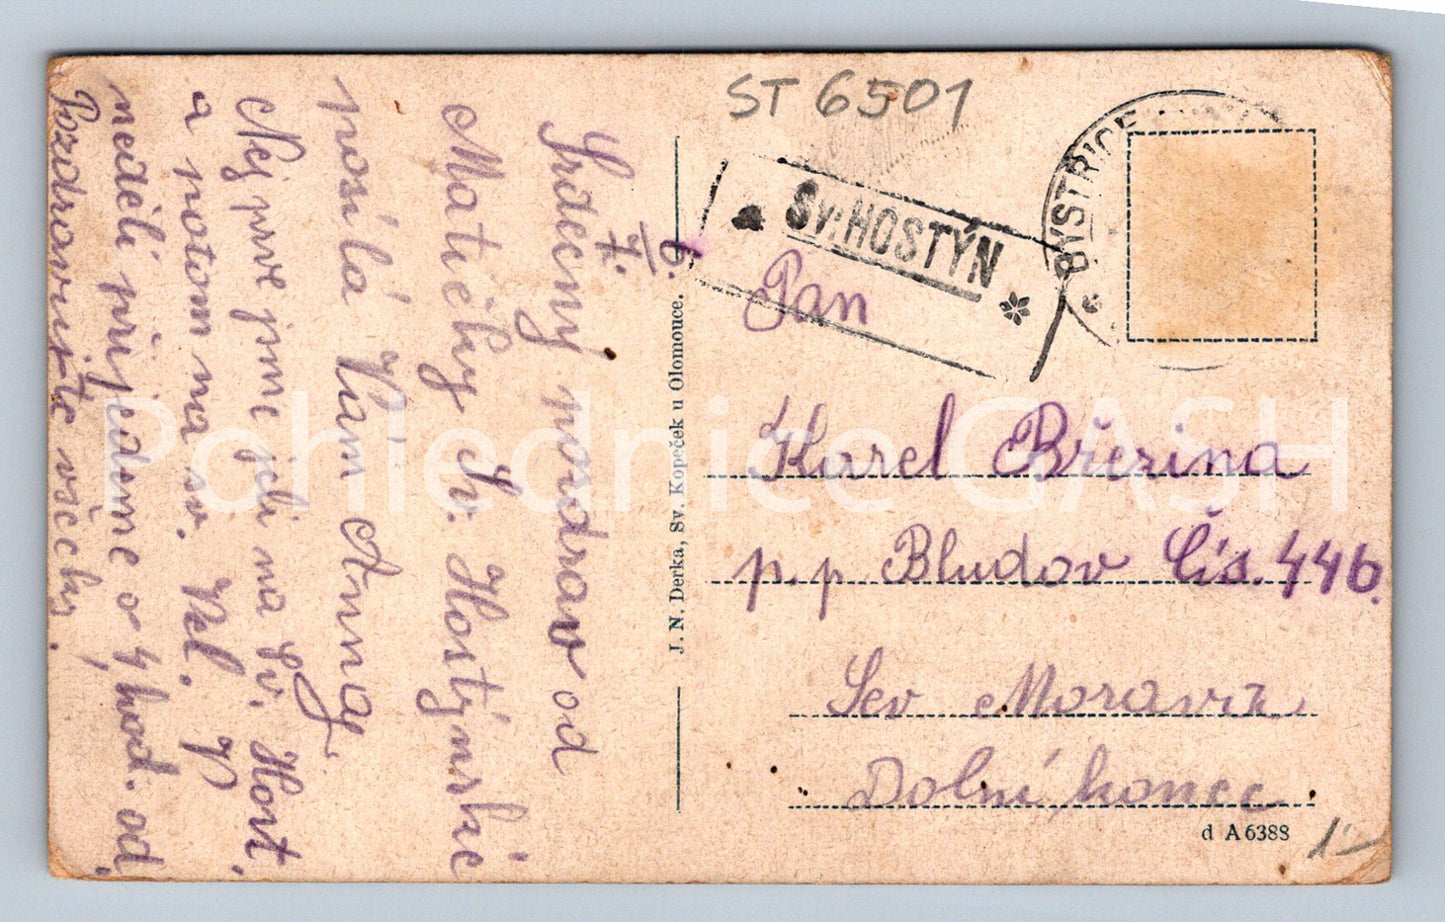 ST 6501
BYSTŘICE
Sv. HOSTÝN
7./6.
Srdečný pozdrav od
Matičky Sv. Hostýnské
posílá Vám Anna
Nejprve jsme jeli na Sv. Host.
a potom na sv. Kel.
neděli přijedeme o 4 hod. od
Pozdravujte všecky.
J. N. Derka, Sv. Kopeček u Olomouce.
Pan
Karel Březina
p. p. Bludov čís. 446.
Sev Morava
Dolní konec
d A 6388
1'-
Pohlednice GASH